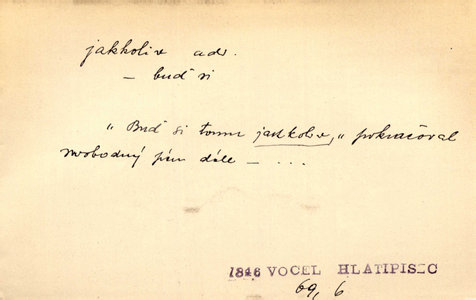 jakkoliv adv.
– buď si
„Buď si tomu jakkoliv," pokračoval
svobodný pán dále – ...
1846 VOCEL HLATIPISEC
69, 6